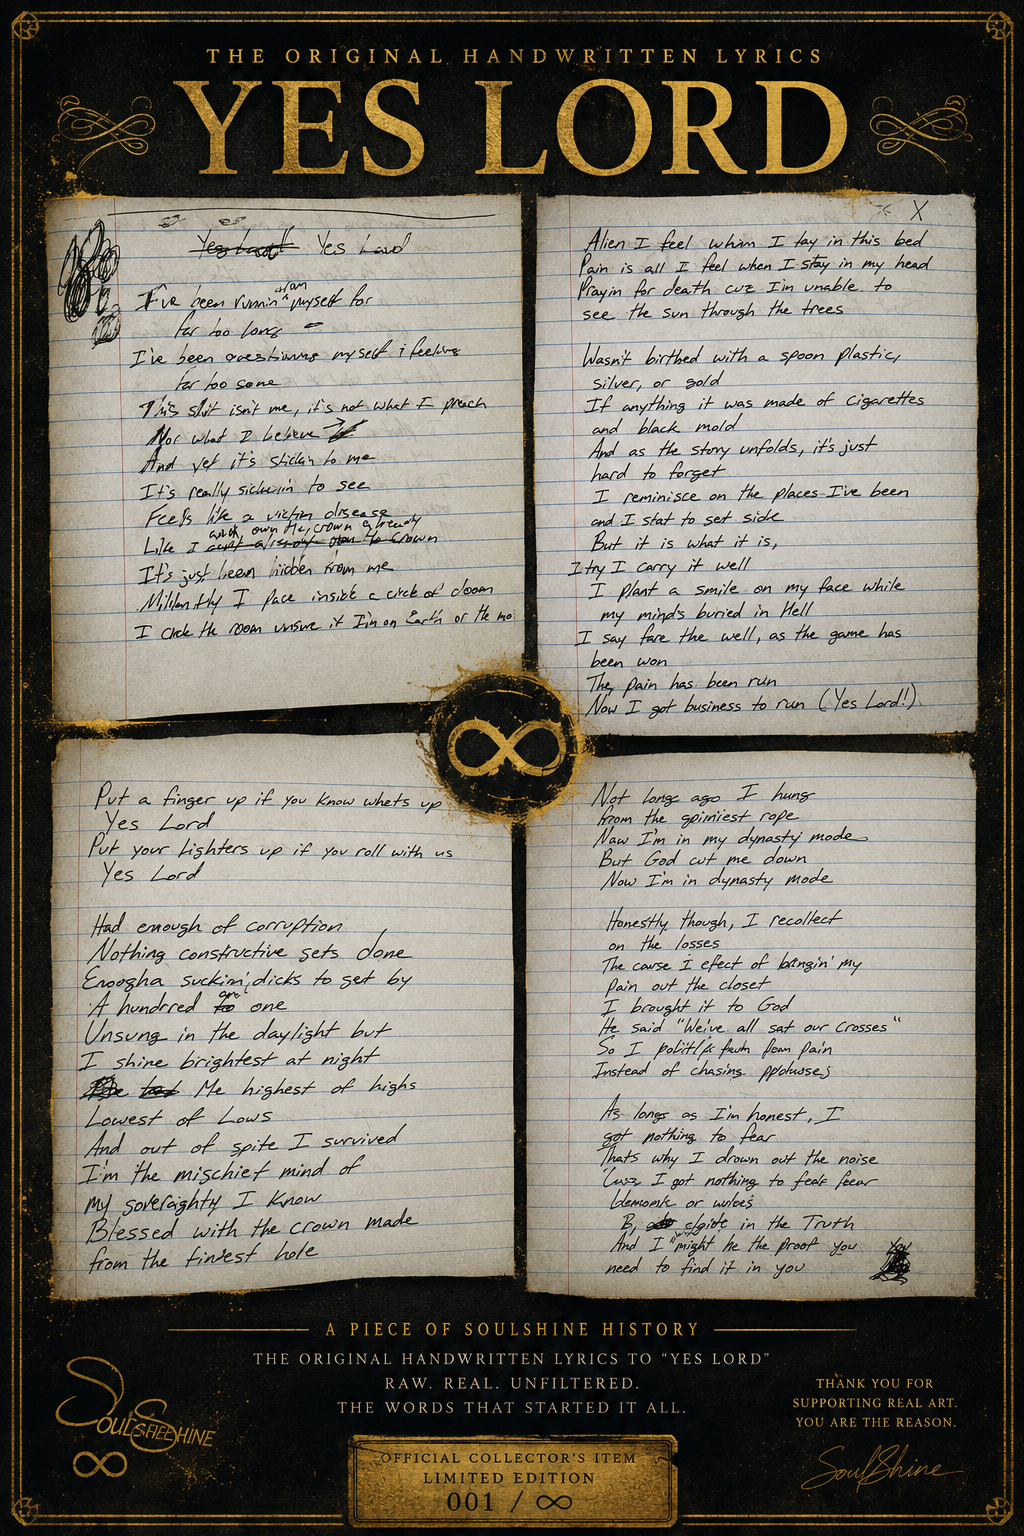 THE ORIGINAL HANDWRITTEN LYRICS
YES LORD
Yes Lord
I've been runnin from myself for
far too long
I've been questioning myself i feeling
far too some
This shit isn't me, it's not what I preach
Nor what I believe
And yet it's stickin to me
It's really sickenin to see
Feels like a victim disease
own the crown already
Like I
crown
It's just been hidden from me
I pace inside a circle of doom
I circle the room unsure if I'm on Earth or the mo
X
Alien I feel when I lay in this bed
Pain is all I feel when I stay in my head
Prayin for death cuz I'm unable to
see the sun through the trees
Wasn't birthed with a spoon plastic,
silver, or gold
If anything it was made of Cigarettes
and black mold
And as the story unfolds, it's just
hard to forget
I reminisce on the places I've been
and I stat to set side
But it is what it is,
I try I carry it well
I plant a smile on my face while
my mind's buried in Hell
I say fare the well, as the game has
been won
The pain has been run
Now I got business to run (Yes Lord!)
∞
Put a finger up if you know whats up
Yes Lord
Put your Lighters up if you roll with us
Yes Lord
Had enough of corruption
Nothing constructive gets done
suckin' dicks to get by
A hundred to one
Unsung in the daylight but
I shine brightest at night
Me highest of highs
Lowest of Lows
And out of spite I survived
I'm the mischief mind of
my I know
Blessed with the crown made
from the hole
Not long ago I hung
from the rope
Now I'm in my dynasty mode
But God cut me down
Now I'm in dynasty mode
Honestly though, I recollect
on the losses
The cause i efect of bringin' my
pain out the closet
I brought it to God
He said "We've all sat our crosses"
So I from pain
Instead of chasing
As long as I'm honest, I
got nothing to fear
Thats why I drown out the noise
Cuz I got nothing to fear
or
in the Truth
And I might be the proof you
need to find it in you
You
A PIECE OF SOULSHINE HISTORY
THE ORIGINAL HANDWRITTEN LYRICS TO "YES LORD"
RAW. REAL. UNFILTERED.
THE WORDS THAT STARTED IT ALL.
∞
OFFICIAL COLLECTOR'S ITEM
LIMITED EDITION
001 / ∞
THANK YOU FOR
SUPPORTING REAL ART.
YOU ARE THE REASON.
SoulShine